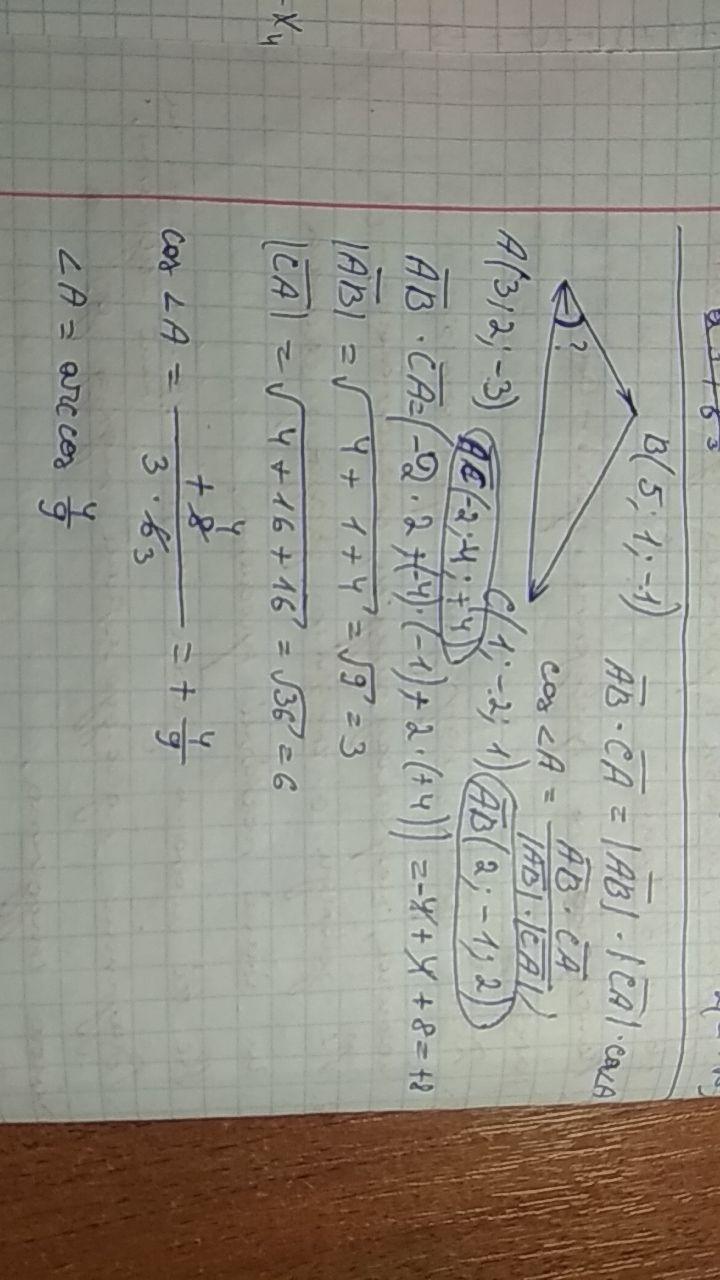 -x₄
B(5; 1; -1)
AB · CA = |AB| · |CA| · cos A
?
cos ∠A = AB · CA / |AB| · |CA|
A(3; 2; -3) C(1; -2; 1)
AC(-2; -4; +4) AB(2; -1; 2)
AB · CA = (-2 · 2 + (-4) · (-1) + 2 · (+4)) = -4 + 4 + 8 = +8
|AB| = √4 + 1 + 4 = √9 = 3
|CA| = √4 + 16 + 16 = √36 = 6
cos ∠A = + 8 4 / 3 · 6 3 = + 4/9
∠A = arccos 4/9